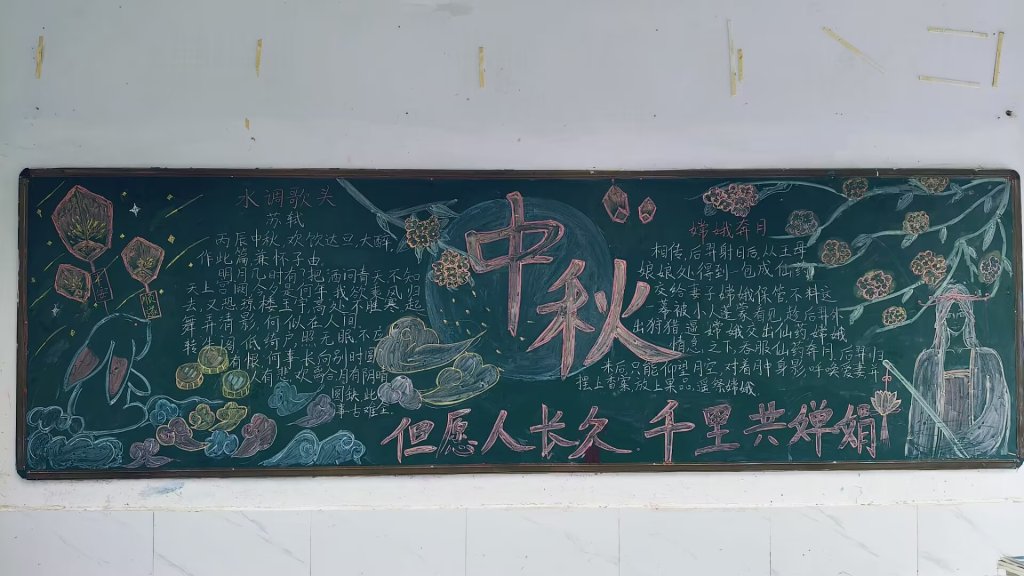 水调歌头
苏轼
丙辰中秋,欢饮达旦,大醉,
作此篇,兼怀子由
明月几时有?把酒问青天。不知
天上宫阙,今夕是何年。我欲乘风归
去,又恐琼楼玉宇,高处不胜寒。起
舞弄清影,何似在人间。
转朱阁,低绮户,照无眠。不
恨,何事长向别时圆
有
圆缺,此
事古难全
中秋
嫦娥奔月
相传,后羿射日后,从王母
娘娘处得到一包成仙药
交给妻子嫦娥保管,不料这
幕被小人蓬蒙看见,趁后羿外
出狩猎,逼嫦娥交出仙药,嫦娥
情急之下,吞服仙药奔月,后羿归
来后,只能仰望月空,对着月中身影,呼唤爱妻,并
摆上香案,放上果品,遥祭嫦娥
但愿人长久 千里共婵娟